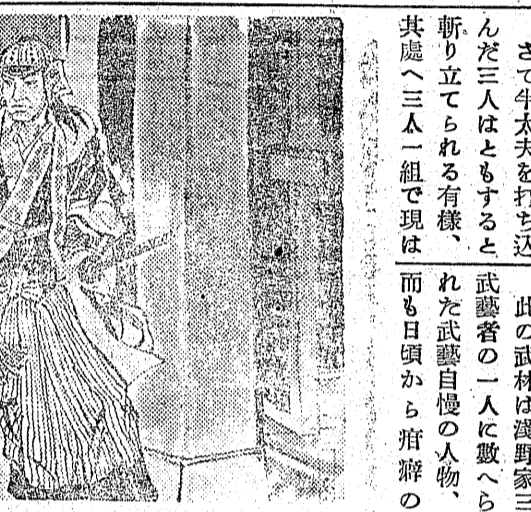 さて半太夫を打ち込
んだ三人はともすると
斬り立てられる有様、
其處へ三人一組で現は
此の武林は淺野家三
武藝者の一人に數へら
れた武藝自慢の人物、
而も日頃から疳癖の